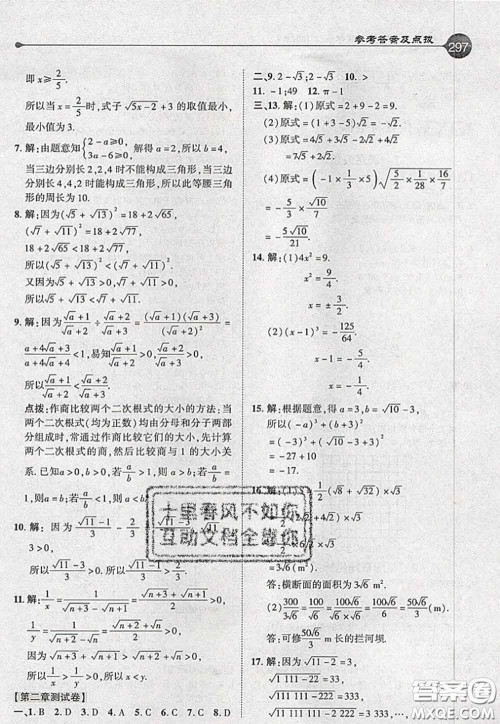 参考答案及点拨
297
即 x≥2/5.
所以当 x=2/5 时，式子√(5x-2)+3 的取值最小，
最小值为 3.
7. 解：由题意知{2-a≥0, 3a-6≥0}解得 a=2，所以 b=4.
当三边分别长 2,2,4 时不能构成三角形，当三边
分别长 4,4,2 时能构成三角形，所以此等腰三角
形的周长为 10.
8. 解：因为(√5+√13)²=18+2√65，
(√7+√11)²=18+2√77，
18+2√65<18+2√77，
所以(√5+√13)²<(√7+√11)².
又因为√5+√13>0，√7+√11>0，
所以√5+√13<√7+√11.
9. 解：因为(√a+1)/(√a+2)÷(√a+2)/(√a+3)=(√a+1)(√a+3)/(√a+2)²=
(a+4√a+3)/(a+4√a+4)<1，易知(√a+1)/(√a+2)>0，(√a+2)/(√a+3)>0，
所以(√a+1)/(√a+2)<(√a+2)/(√a+3).
点拨：作商比较两个二次根式的大小的方法：当
两个二次根式（均为正数）均由分母和分子两部
分组成时，常通过作商比较它们的大小，先计算
两个二次根式的商，然后比较商与 1 的大小关
系. 已知 a>0，b>0，若a/b>1，则 a>b；若a/b=
1，则 a=b；若a/b<1，则 a<b.
10. 解：因为(√11-1)/3-2/3=(√11-3)/3，√11>3，
所以(√11-3)/3>0，所以(√11-1)/3>2/3.
11. 解：因为1/x=1/(√(n+3)-√(n+1))=(√(n+3)+√(n+1))/2>0，
1/y=1/(√(n+2)-√n)=(√(n+2)+√n)/2>0，
所以1/x>1/y>0，
所以 x<y.
【第二章测试卷】
一、1. B 2. D 3. D 4. D 5. C 6. B 7. B 8. A
二、9. 2-√3；2-√3 10. >
11. -1；49 12. π-1
三、13. 解：(1)原式=2+9-2=9.
(2)原式=(1+3-5)√5=-√5.
(3)原式=4√5+3√5-2√2+4√2
=7√5+2√2.
(4)原式=(-1×1/3×5)√(2/5×1/28×16/7)
=-5/3×√10/7
=-5√10/21.
14. 解：(1)4x²=9.
x²=9/4.
x=±3/2.
(2)(x-1)³=-125/64.
x-1=-5/4.
x=-1/4.
15. 解：根据题意，得 a=3，b=√10-3，
×√3
=3√6(m²).
答：横断面的面积为 3√6 m².
(2)300/3√6=100/√6=100√6/6=50√6/3(m).
答：可修50√6/3 m 长的拦河坝.
√(11-2)=3，
√(1 111-22)=33，
√(111 111-222)=333，
√(11 111 111-2 222)=3 333，
十里春风不如你
互动文档全惠您
答案圈
MXQE.COM